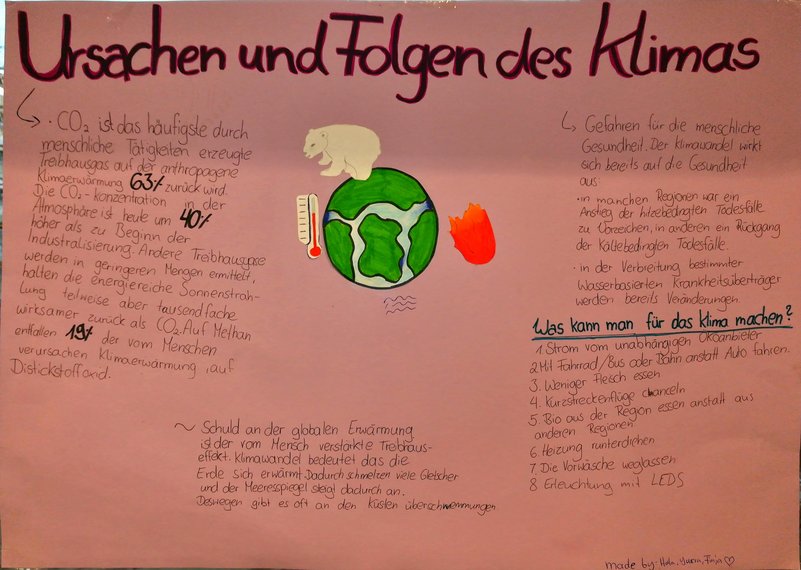 Ursachen und Folgen des Klimas
· CO₂ ist das häufigste durch
menschliche Tätigkeiten erzeugte
Treibhausgas auf der anthropogene
Klimaerwärmung 63% zurück wird.
Die CO₂-Konzentration in der
Atmosphäre ist heute um 40%
höher als zu Beginn der
Industrialisierung. Andere Treibhausgase
werden in geringeren Mengen ermittelt,
halten die energiereiche Sonnenstrah-
lung teilweise aber tausendfache
wirksamer zurück als CO₂. Auf Methan
entfallen 19% der vom Menschen
verursachen Klimaerwärmung, auf
Distickstoffoxid.
~ Schuld an der globalen Erwärmung
ist der vom Mensch verstärkte Treibhaus-
effekt. Klimawandel bedeutet das die
Erde sich erwärmt. Dadurch schmelzen viele Gletscher
und der Meeresspiegel steigt dadurch an.
Deswegen gibt es oft an den Küsten überschwemmungen
Gefahren für die menschliche
Gesundheit. Der Klimawandel wirkt
sich bereits auf die Gesundheit
aus:
· in manchen Regionen war ein
Anstieg der hitzebedingten Todesfälle
zu Vorzeichen, in anderen ein Rückgang
der Kältebedingten Todesfälle.
· in der Verbreitung bestimmter
Wasserbasierten Krankheitsüberträger
werden bereits Veränderungen.
Was kann man für das Klima machen?
1. Strom vom unabhängigen Ökoanbieter
2 Mit Fahrrad/Bus oder Bahn anstatt Auto fahren.
3. Weniger Fleisch essen
4. Kurzstreckenflüge canceln
5. Bio aus der Region essen anstatt aus
anderen Regionen
6. Heizung runterdrehen
7. Die Vorwäsche weglassen
8 Erleuchtung mit LEDS
made by: Finja ♡